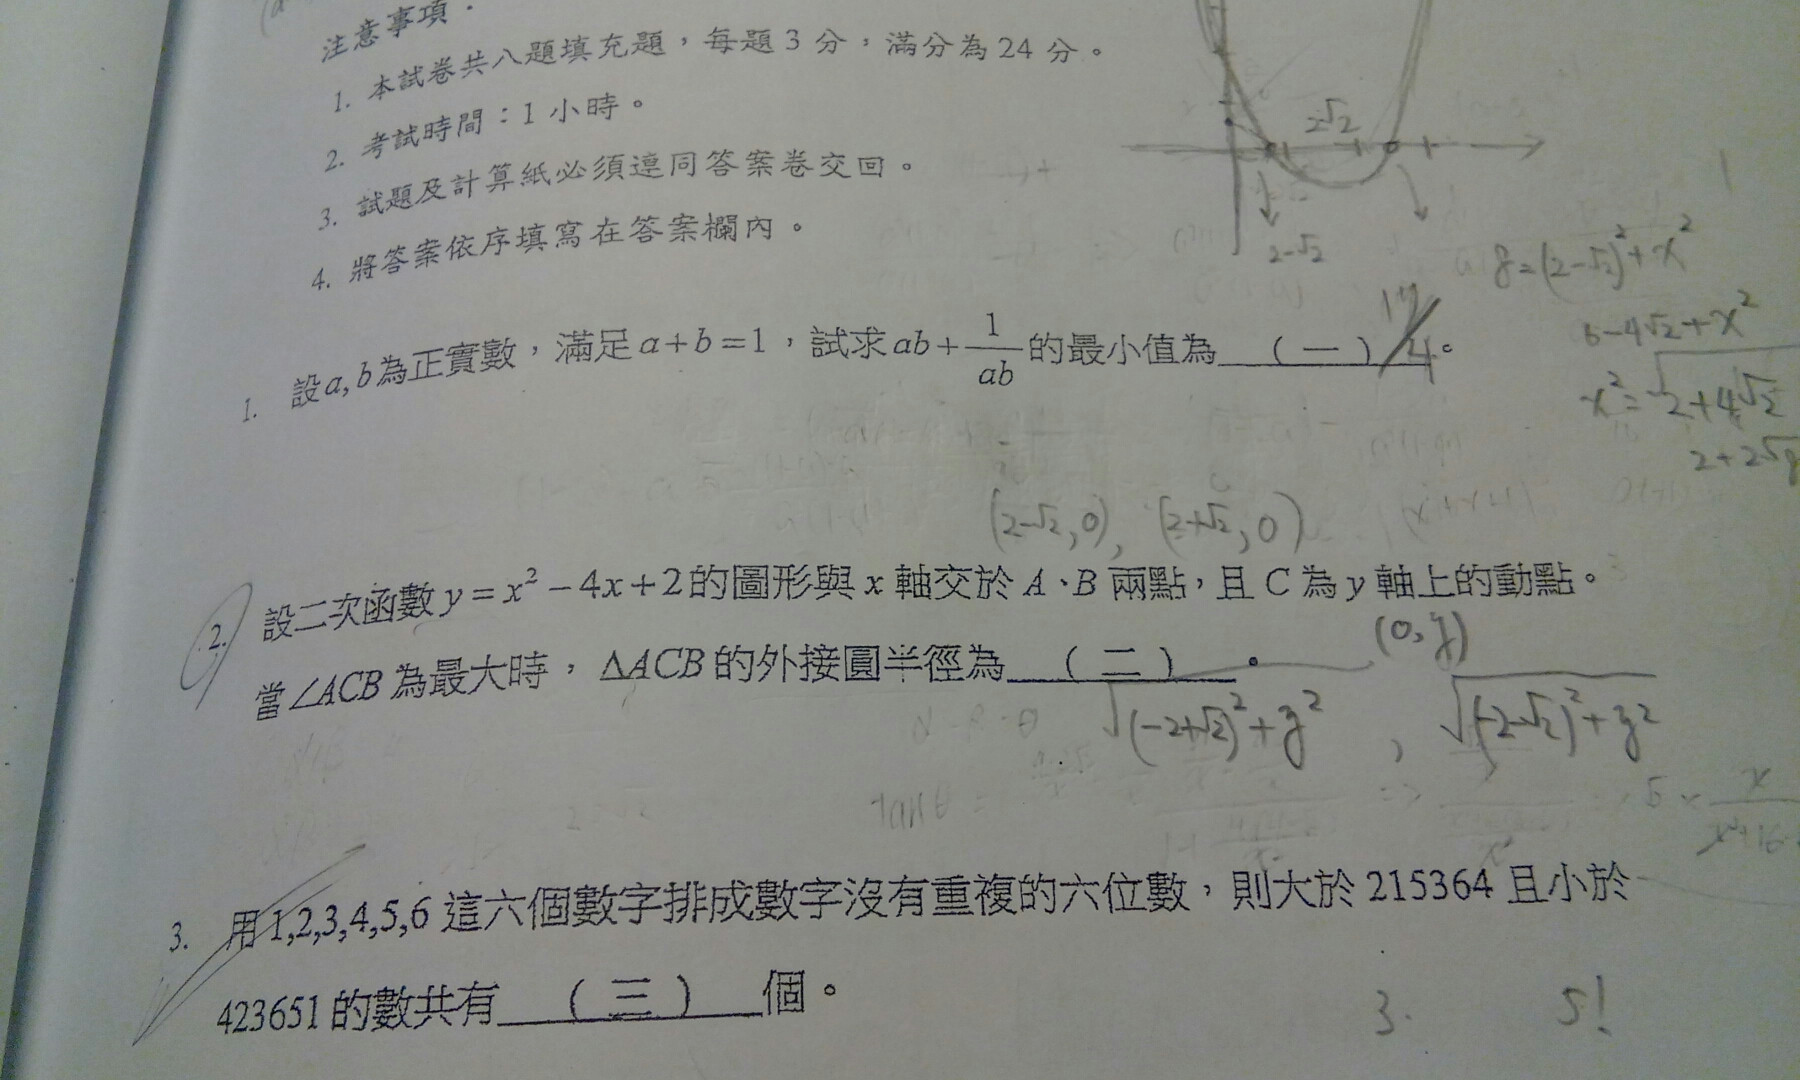 注意事項：
1. 本試卷共八題填充題，每題3分，滿分為24分。
2. 考試時間：1小時。
3. 試題及計算紙必須連同答案卷交回。
4. 將答案依序填寫在答案欄內。
2√2
2-√2
8=(2-√2)²+x²
6-4√2+x²
x²=√2+4√2
1. 設a,b為正實數，滿足a+b=1，試求ab+1/ab的最小值為 （一） 17/4。
(2-√2,0), (2+√2,0)
2. 設二次函數y=x²-4x+2的圖形與x軸交於A、B兩點，且C為y軸上的動點。
(0,y)
當∠ACB為最大時，ΔACB的外接圓半徑為 （二） 。
√(-2+√2)²+y² , √(-2-√2)²+y²
tanθ =
3. 用1,2,3,4,5,6這六個數字排成數字沒有重複的六位數，則大於215364且小於
423651的數共有 （三） 個。
3. 5!